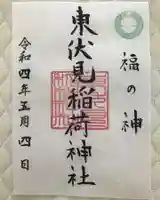 福の神
東伏見稲荷神社
令和四年五月四日